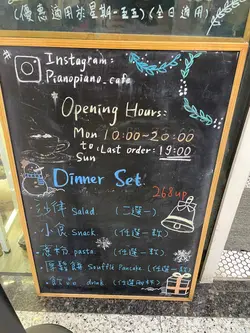 (優惠適用於星期一至五)(全日適用)
Instagram:
Pianopiano_cafe
Opening Hours:
Mon 10:00-20:00
to Last order: 19:00
Sun
Dinner Set
268up
沙律 Salad (二選一)
小食 Snack (任選一款)
意粉 pasta (任選一款)
梳乎厘 Soufflé Pancake (任選一款)
飲品 drink (任選